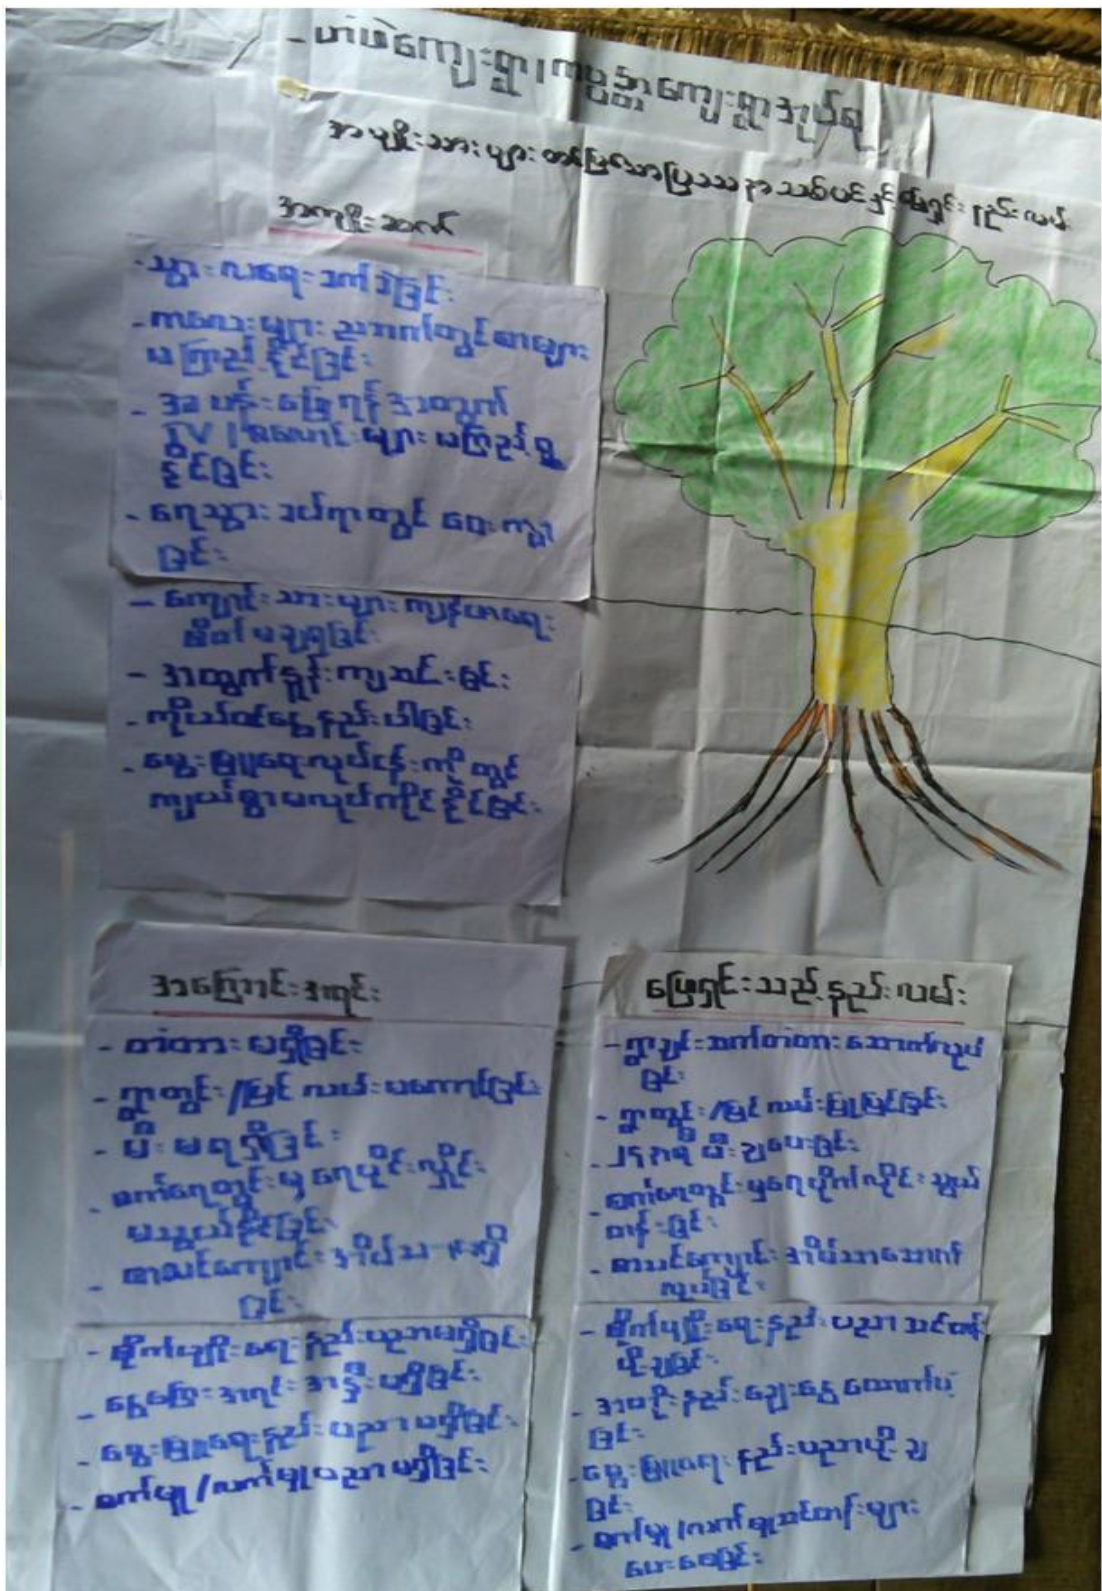 - ဟံဖဲကျေးရွာ၊ ကမ္ပတ္တာကျေးရွာအုပ်စု
အမျိုးသားများ တင်ပြသောပြဿနာသစ်ပင်နှင့် ဖြေရှင်းနည်းလမ်း
အကျိုးဆက်
- သွားလာရေး ခက်ခဲခြင်း
- ကလေးများ ညဘက်တွင်စာများ
မကြည့်နိုင်ခြင်း
- အပန်းဖြေရန်အတွက်
TV / စလောင်းများ မကြည့်ရှု
နိုင်ခြင်း
- ရေသွားခပ်ရာတွင် ဝေးကွာ
ခြင်း
- ကျောင်းသားများ ကျန်းမာရေး
စိတ်မချရခြင်း
- အထွက်နှုန်းကျဆင်းခြင်း
- ကိုယ်ဝင်ငွေနည်းပါခြင်း
- မွေးမြူရေးလုပ်ငန်းကို တွင်
ကျယ်စွာမလုပ်ကိုင်နိုင်ခြင်း
အကြောင်းအရင်း
- တံတားမရှိခြင်း
- ရွာတွင်း/ပြင် လမ်းမကောင်းခြင်း
- မီးမရရှိခြင်း
- စက်ရေတွင်းမှ ရေပိုင်းလှိုင်း
မသွယ်နိုင်ခြင်း
- စာသင်ကျောင်းအိမ်သာမရှိ
ခြင်း
- စိုက်ပျိုးရေးနည်းပညာမရှိခြင်း
- ငွေကြေးအရင်းအနှီးမရှိခြင်း
- မွေးမြူရေးနည်းပညာမရှိခြင်း
- စက်မှု/လက်မှုပညာမရှိခြင်း
ဖြေရှင်းသည့်နည်းလမ်း
- ရွာချင်းဆက်တံတားဆောက်လုပ်
ခြင်း
- ရွာတွင်း/ပြင်လမ်းပြုပြင်ခြင်း
- ၂၄ နာရီ မီးဥပေးခြင်း
စက်ရေတွင်းမှရေပိုက်လိုင်းသွယ်
- တန်းခြင်း
- စာသင်ကျောင်းအိမ်သာဆောက်
လုပ်ခြင်း
- စိုက်ပျိုးရေးနည်းပညာသင်တန်း
ပို့ချခြင်း
- အတိုးနည်းချေးငွေထောက်ပံ့
ခြင်း
- မွေးမြူရေးနည်းပညာပို့ချ
ခြင်း
- စက်မှု/လက်မှုသင်တန်းများ
ပေးစေခြင်း